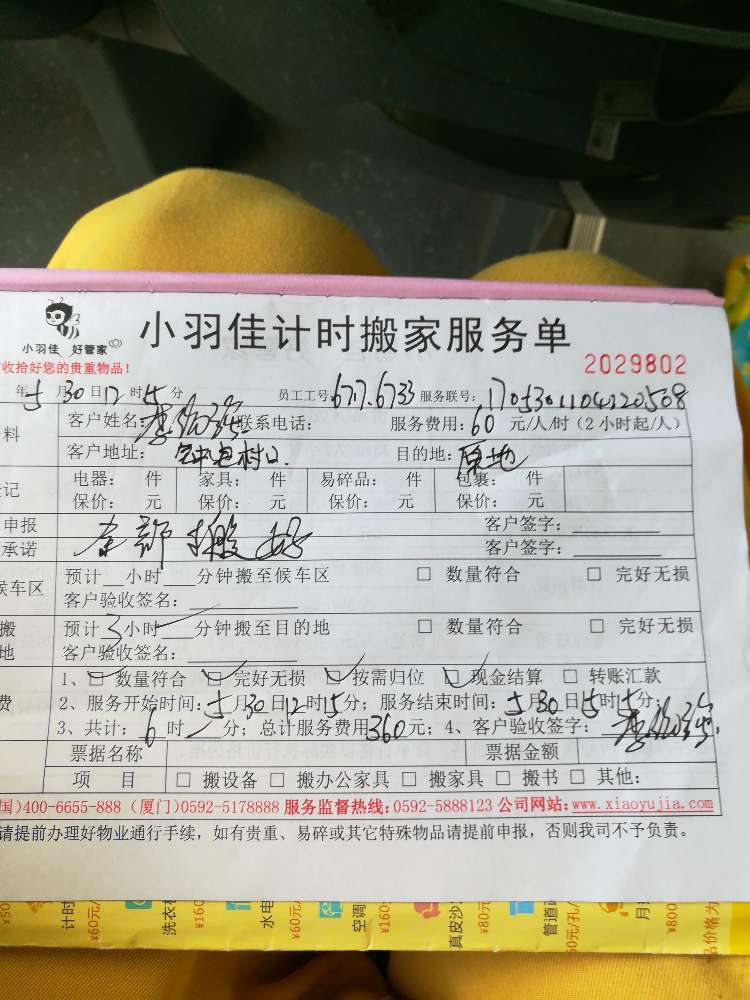 小羽佳 好管家
小羽佳计时搬家服务单
收拾好您的贵重物品！
2029802
年5月30日12时15分 员工工号:677.6733 服务联号:1705301104120508
料 客户姓名: 联系电话: 服务费用:60元/人/时(2小时起/人)
客户地址: 村口 目的地:原地
记 电器: 件 家具: 件 易碎品: 件 包裹: 件
保价: 元 保价: 元 保价: 元 保价: 元
申报 全部搬好 客户签字:
承诺 客户签字:
候车区 预计 小时 分钟搬至候车区 □ 数量符合 □ 完好无损
客户验收签名:
搬 预计3小时 分钟搬至目的地 □ 数量符合 □ 完好无损
地 客户验收签名:
1、☑ 数量符合 ☑ 完好无损 ☑ 按需归位 ☑ 现金结算 □ 转账汇款
费 2、服务开始时间:5月30日12时15分; 服务结束时间:5月30日15时15分;
3、共计:6时 分; 总计服务费用360元; 4、客户验收签字:
票据名称 票据金额
项 目 □ 搬设备 □ 搬办公家具 □ 搬家具 □ 搬书 □ 其他:
国)400-6655-888 (厦门)0592-5178888 服务监督热线:0592-5888123 公司网站:www.xiaoyujia.com
请提前办理好物业通行手续，如有贵重、易碎或其它特殊物品请提前申报，否则我司不予负责。
计时
¥60元/
洗衣机
¥160
水电
¥60元/
空调
¥160
真皮沙
¥80元
管道
50元/孔/
月
¥800
品价格为